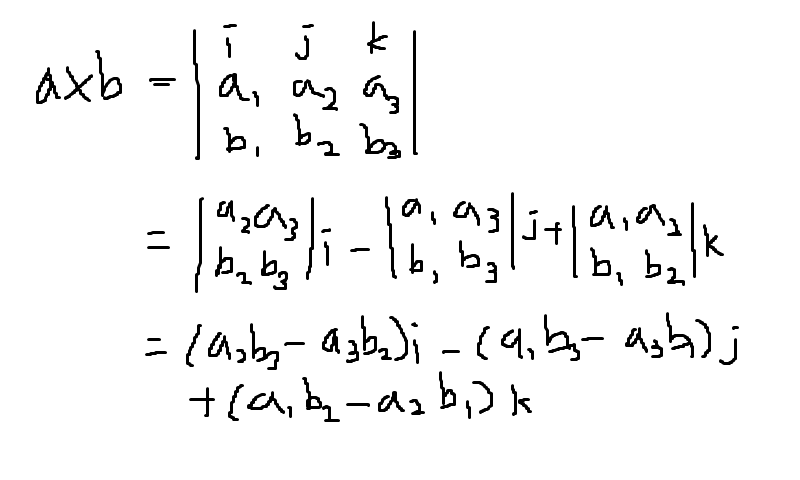 a×b = | i j k |
| a₁ a₂ a₃ |
| b₁ b₂ b₃ |
= | a₂ a₃ | i - | a₁ a₃ | j + | a₁ a₂ | k
| b₂ b₃ | | b₁ b₃ | | b₁ b₂ |
= (a₂b₃ - a₃b₂)i - (a₁b₃ - a₃b₁)j
+ (a₁b₂ - a₂b₁)k